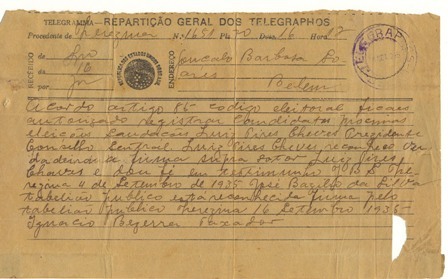 TELEGRAMMA - REPARTIÇÃO GERAL DOS TELEGRAPHOS
Procedente de Therezina N. 1651 Pls. 70 Data 16 Hora 18
RECEBIDO
de
16
por
ENDEREÇO
Goncalo Barbosa So
ares
Belem
TELEGRAP
Acordo artigo 85 codigo eleitoral ficaes
autorizado registrar Candidatos proximas
eleições Saudações Luiz Pires Chaves Presidente
Conselho Central Luiz Pires Chaves reconheço ver
dadeira a firma supra Luiz Pires
Chaves e dou fé em testimunho The
rezina 4 de Setembro de 1935 José Basilio da Silva
tabellião publico está reconhecida firma pelo
tabellião publico Therezina 16 Setembro 1935
Ignacio Bezerra